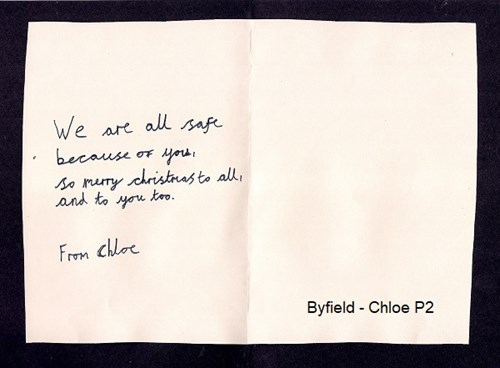 We are all safe
because of you,
so merry christmas to all,
and to you too.
From Chloe
Byfield - Chloe P2